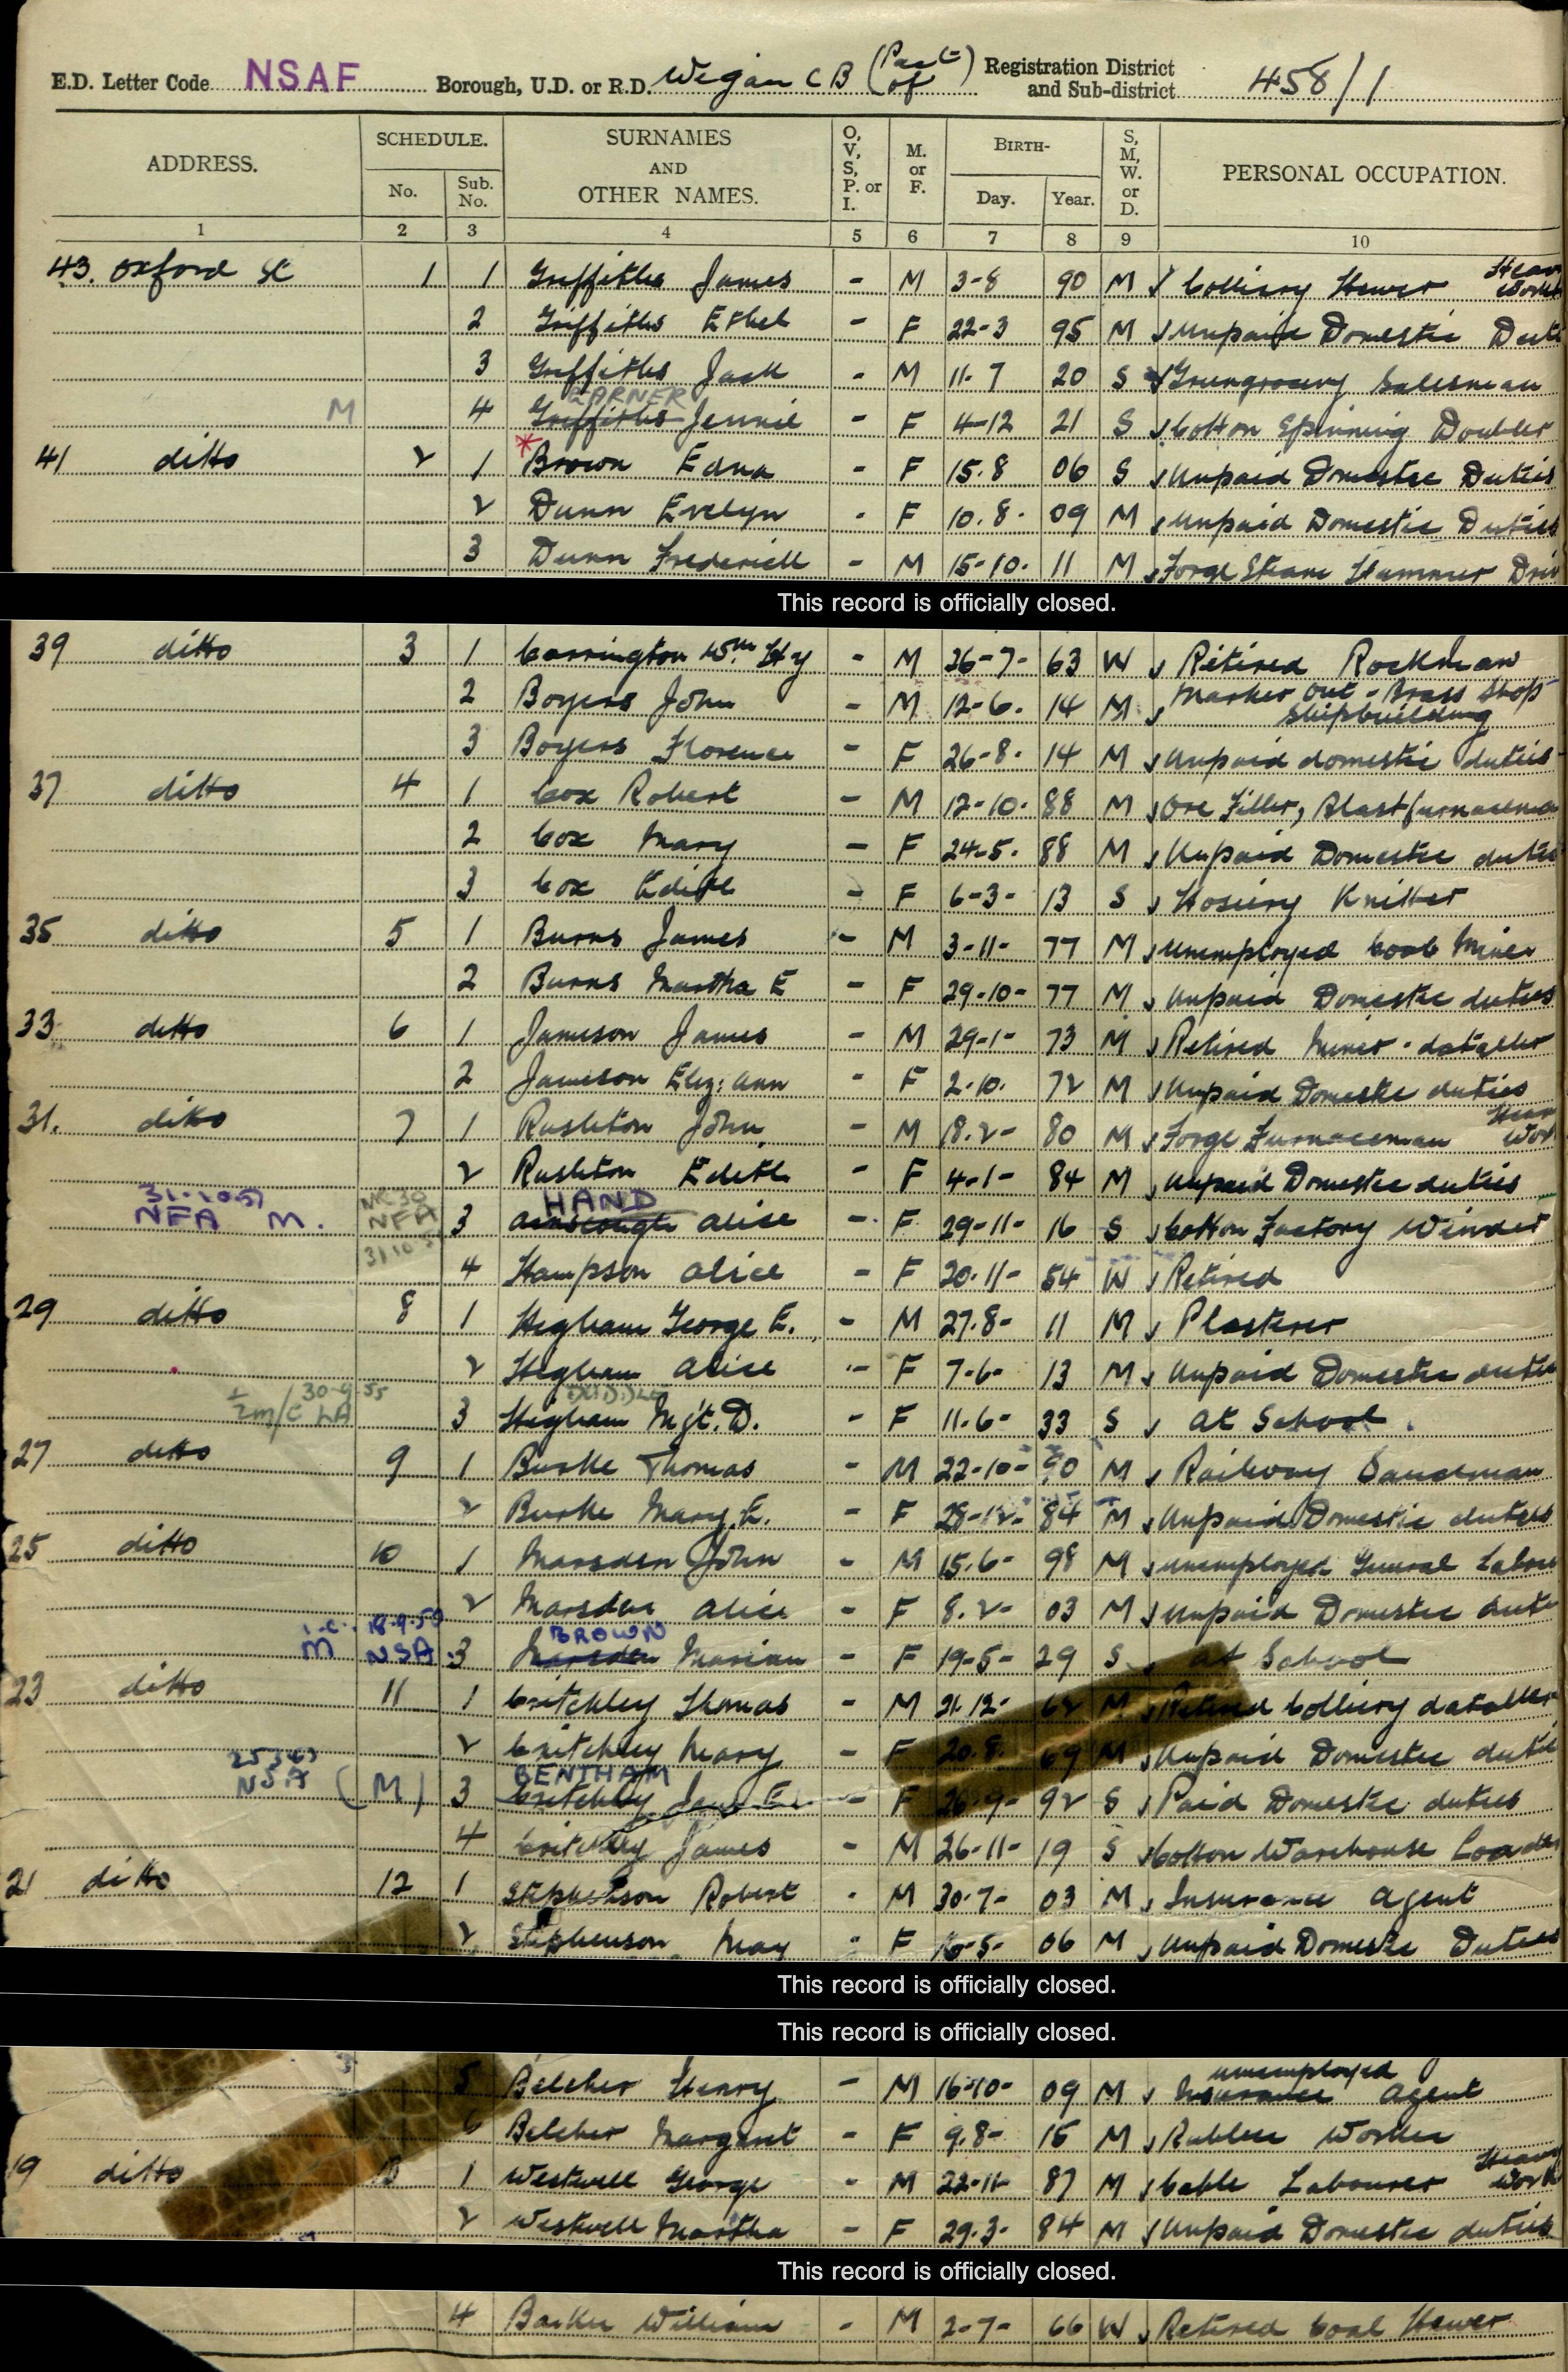 E.D. Letter Code NSAF Borough, U.D. or R.D. Wigan C B (Part of) Registration District and Sub-district 458/1
ADDRESS. SCHEDULE. No. Sub. No. SURNAMES AND OTHER NAMES. O, V, S, P. or I. M. or F. BIRTH- Day. Year. S, M, W. or D. PERSONAL OCCUPATION.
1 2 3 4 5 6 7 8 9 10
43. Oxford St 1 1 Griffiths James - M 3-8 90 M Colliery Hewer Heavy Work
2 Griffiths Ethel - F 22-3 95 M Unpaid Domestic Duti
3 Griffiths Jack - M 11-7 20 S Greengrocery Salesman
GARNER
M 4 Griffiths Jennie - F 4-12 21 S Cotton Spinning Doubler
41 ditto 2 1 Brown Edna - F 15.8 06 S Unpaid Domestic Duties
2 Dunn Evelyn - F 10.8. 09 M Unpaid Domestic Duties
3 Dunn Frederick - M 15-10. 11 M Forge Steam Hammer Driv
This record is officially closed.
39 ditto 3 1 Carrington Wm. Hy - M 26-7- 63 W Retired Rockman
2 Bogers John - M 12-6. 14 M Marker out - Brass Shop Shipbuilding
3 Bogers Florence - F 26-8. 14 M Unpaid domestic duties
37 ditto 4 1 Cox Robert - M 12-10. 88 M Ore Filler, Blastfurnaceman
2 Cox Mary - F 24-5. 88 M Unpaid Domestic duties
3 Cox Edith - F 6-3- 13 S Hosiery Knitter
35 ditto 5 1 Burns James - M 3-11- 77 M Unemployed Coal Miner
2 Burns Martha E - F 29-10- 77 M Unpaid Domestic duties
33 ditto 6 1 Jameson James - M 29-1- 73 M Retired Miner - dataller
2 Jameson Eliz: Ann - F 2.10. 72 M Unpaid Domestic duties
31. ditto 7 1 Rushton John - M 18.2- 80 M Forge Furnaceman Heavy Work
2 Rushton Edith - F 4-1- 84 M Unpaid Domestic duties
31-10-51 HAND
NFA M. NFA 3 Ainscough Alice - F 29-11- 16 S Cotton Factory Winder
4 Hampson Alice - F 20.11- 54 W Retired
29 ditto 8 1 Higham George E. - M 27.8- 11 M Plasterer
2 Higham Alice - F 7-6- 13 M Unpaid Domestic duties
30-9-55
LA 3 Higham Mgt. D. - F 11.6- 33 S At School
27 ditto 9 1 Burke Thomas - M 22-10- 90 M Railway Sandman
2 Burke Mary E. - F 28-12- 84 M Unpaid Domestic duties
25 ditto 10 1 Marsden John - M 15.6- 98 M Unemployed General Labou
2 Marsden Alice - F 8.2- 03 M Unpaid Domestic duti
18-9-50 BROWN
M NSA 3 Marsden Marian - F 19-5- 29 S at School
23 ditto 11 1 Critchley Thomas - M 21.12- 62 M Retired Colliery dataller
2 Critchley Mary - F 20.8. 69 M Unpaid Domestic duti
BENTHAM
NSA (M) 3 Critchley Jane E. - F 26-9- 92 S Paid Domestic duties
4 Critchley James - M 26-11- 19 S Cotton Warehouse Loader
21 ditto 12 1 Stephenson Robert - M 30.7- 03 M Insurance Agent
2 Stephenson May - F 16-5- 06 M Unpaid Domestic Duties
This record is officially closed.
This record is officially closed.
unemployed
5 Belcher Henry - M 16-10- 09 M Insurance Agent
6 Belcher Margaret - F 9.8- 15 M Rubber Worker
19 ditto 13 1 Westwell George - M 22-11- 87 M Cable Labourer Heavy Work
2 Westwell Martha - F 29.3- 84 M Unpaid Domestic duties
This record is officially closed.
4 Barker William - M 2-7- 66 W Retired Coal Hewer